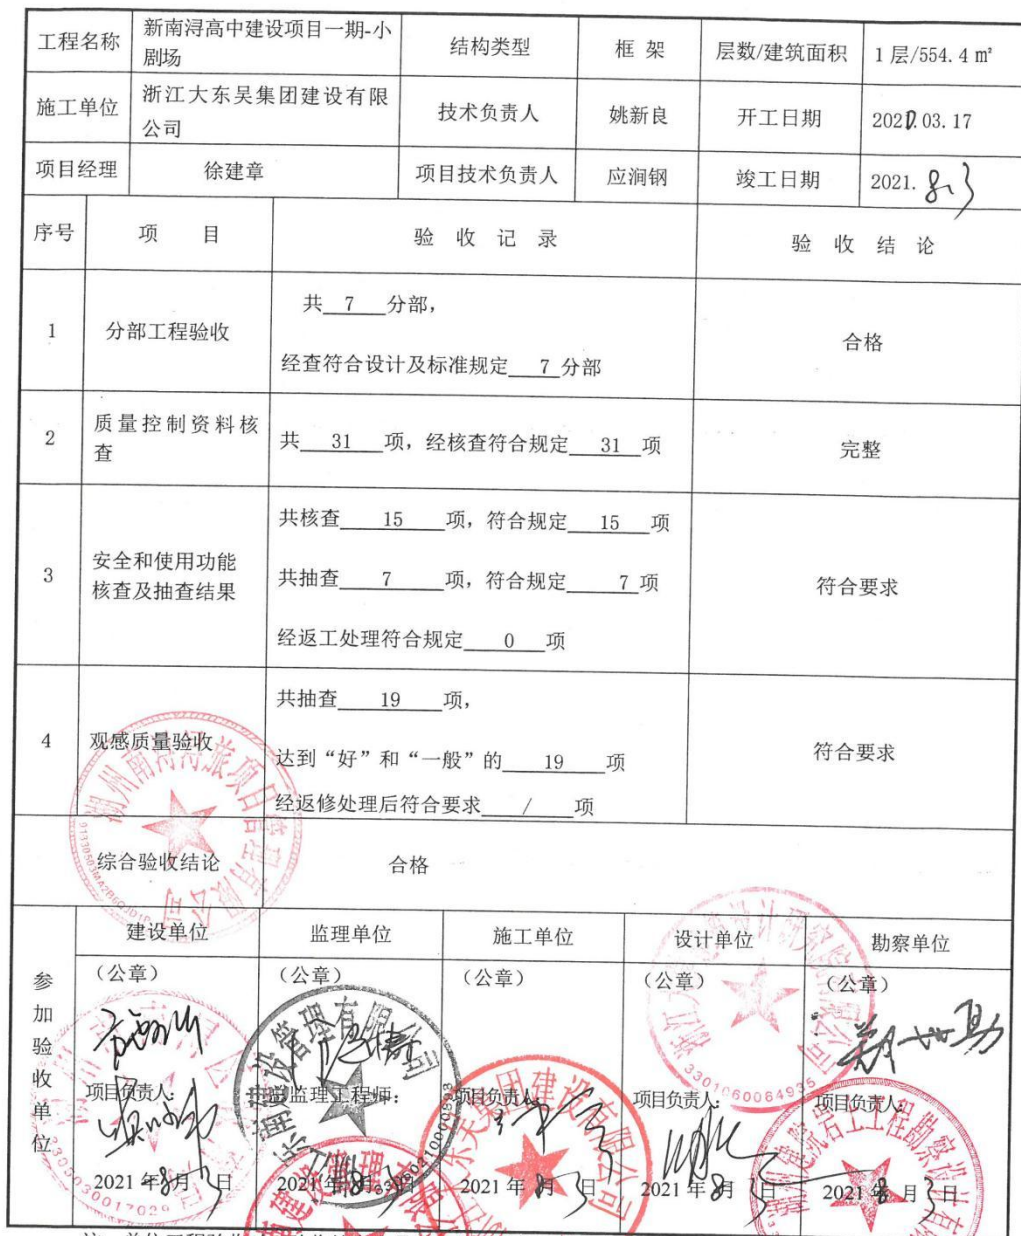 工程名称
新南浔高中建设项目一期-小
剧场
结构类型
框 架
层数/建筑面积
1层/554.4㎡
施工单位
浙江大东吴集团建设有限
公司
技术负责人
姚新良
开工日期
2021.03.17
项目经理
徐建章
项目技术负责人
应涧钢
竣工日期
2021.8.3
序号
项 目
验 收 记 录
验 收 结 论
1
分部工程验收
共 7 分部,
经查符合设计及标准规定 7 分部
合格
2
质量控制资料核
查
共 31 项, 经核查符合规定 31 项
完整
3
安全和使用功能
核查及抽查结果
共核查 15 项, 符合规定 15 项
共抽查 7 项, 符合规定 7 项
经返工处理符合规定 0 项
符合要求
4
观感质量验收
共抽查 19 项,
达到“好”和“一般”的 19 项
经返修处理后符合要求 / 项
符合要求
综合验收结论
合格
参加验收单位
建设单位
监理单位
施工单位
设计单位
勘察单位
(公章)
(公章)
(公章)
(公章)
(公章)
项目负责人:
总监理工程师:
项目负责人:
项目负责人:
项目负责人:
2021年8月3日
2021年8月3日
2021年8月3日
2021年8月3日
2021年8月3日